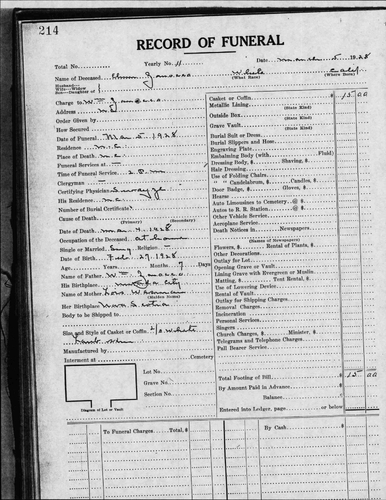 214
RECORD OF FUNERAL
Total No. Yearly No. 11 Date March 5 1928
Name of Deceased White Calif
(What Race) (Where Born)
Husband— Widow—
Wife— Widower—
Son—Daughter of
Charge to Wm
Order Given by
How Secured
Date of Funeral Mar 5 1928
Residence M.C.
Place of Death M.C.
Funeral Services at
Time 2 P.M.
Clergyman
Certifying Physician
His Residence M.C.
Number of Burial Certificate
Cause of Death
(Primary) (Secondary)
Date of Death Mar 4 1928
Occupation of the Deceased at home
Single or Married Religion
Date of Birth Feb 27 1928
Age Years Months 7 Days
Name of Father Wm
His Birthplace City
Name of Mother
(Maiden Name)
Her Birthplace Nova Scotia
Body to be Shipped to
Size and Style of Casket or Coffin 2/0 White
Manufactured by
Interment at Cemetery
Lot No.
Grave No.
Section No.
Diagram of Lot or Vault
Casket or Coffin 15 00
Metallic Lining
(State Kind)
Outside Box
(State Kind)
Grave Vault
(State Kind)
Burial Suit or Dress
Burial Slippers and Hose
Engraving Plate
Embalming Body (with Fluid)
Dressing Body, $ Shaving, $
Hair Dressing
Use of Folding Chairs
" " Candelabrum, $ Candles, $
Door Badge, $ Gloves, $
Hearse
Auto Limousines to Cemetery @ $
Autos to R. R. Station @ $
Other Vehicle Service
Aeroplane Service
Death Notices in Newspapers
(Names of Newspapers)
Flowers, $ Rental of Plants, $
Other Decorations
Outlay for Lot
Opening Grave or Vault
Lining Grave with Evergreen or Muslin
Matting, $ Tent Rental, $
Use of Lowering Device
Rental of Vault
Outlay for Shipping
Removal Charges
Incineration
Personal Services
Singers
Church Charges, $ Minister, $
Telegrams and Telephone Charges
Pall Bearer Service
Total Footing of Bill $ 15 00
By Amount Paid in Advance
Balance
Entered into Ledger, page or below
To Funeral Charges Total, $ By Cash $